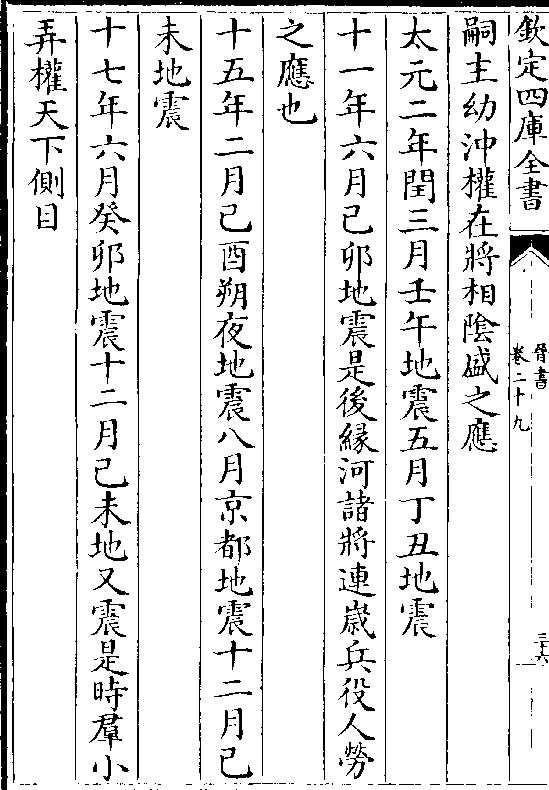 欽定四庫全書
晉書
卷二十九
三十六
嗣主幼沖權在將相陰盛之應
太元二年閏三月壬午地震五月丁丑地震
十一年六月己卯地震是後緣河諸將連嵗兵役人勞
之應也
十五年二月己酉朔夜地震八月京都地震十二月己
未地震
十七年六月癸卯地震十二月己未地又震是時羣小
弄權天下側目